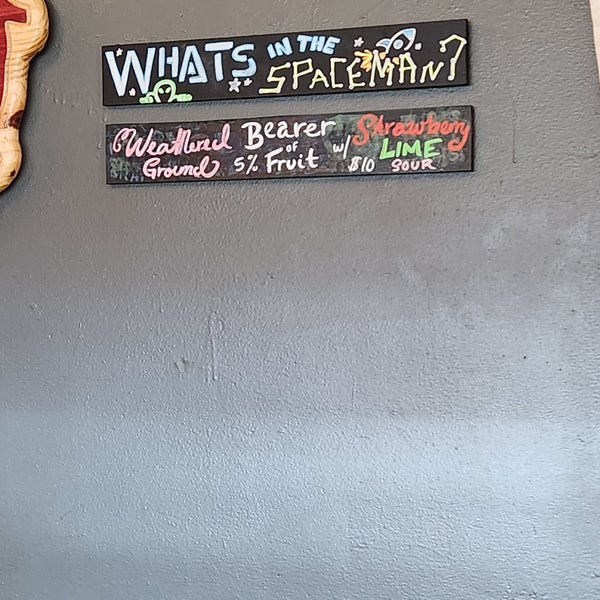 WHATS IN THE
SPACEMAN?
Weathered Bearer w/ Strawberry
Ground 5% of Fruit $10 LIME
SOUR